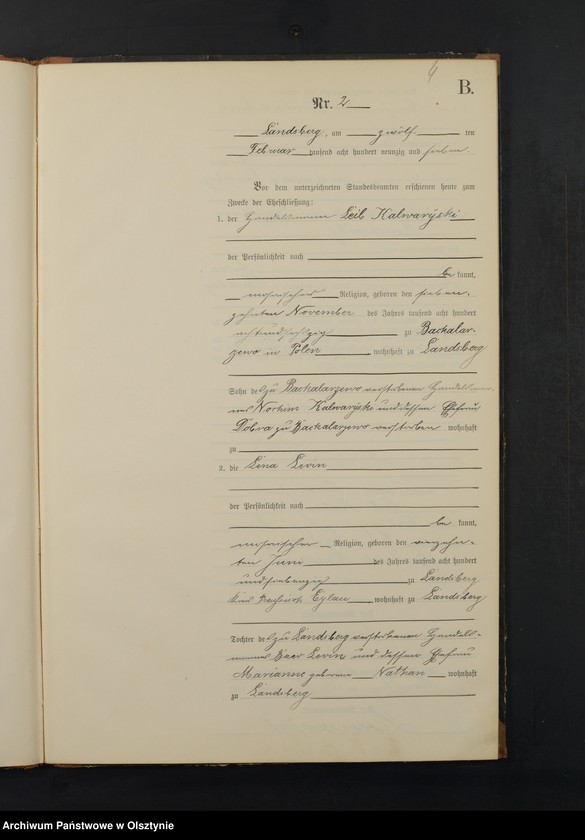 4
B.
Nr. 2
Landsberg, am zwölf ten
Februar tausend acht hundert neunzig und sieben.
Vor dem unterzeichneten Standesbeamten erschienen heute zum
Zwecke der Eheschließung:
1. der Handelsmann Leib Kalwaryski
der Persönlichkeit nach
be kannt,
mosaischer Religion, geboren den sieben-
zehnten November des Jahres tausend acht hundert
achtundsechzig zu Backalar-
zewo in Polen, wohnhaft zu Landsberg
Sohn des zu Backalarzewo verstorbenen Handelsman-
nes Nochim Kalwaryski und dessen Ehefrau
Dobra zu Backalarzewo verstorben wohnhaft
zu
2. die Lina Levin
der Persönlichkeit nach
be kannt,
mosaischer Religion, geboren den vierzehn-
ten Juni des Jahres tausend acht hundert
undsiebenzig zu Landsberg
Kreis Eylau, wohnhaft zu Landsberg
Tochter des zu Landsberg verstorbenen Handels-
mannes Levin und dessen Ehefrau
Marianne geborene Nathan wohnhaft
zu Landsberg
Archiwum Państwowe w Olsztynie